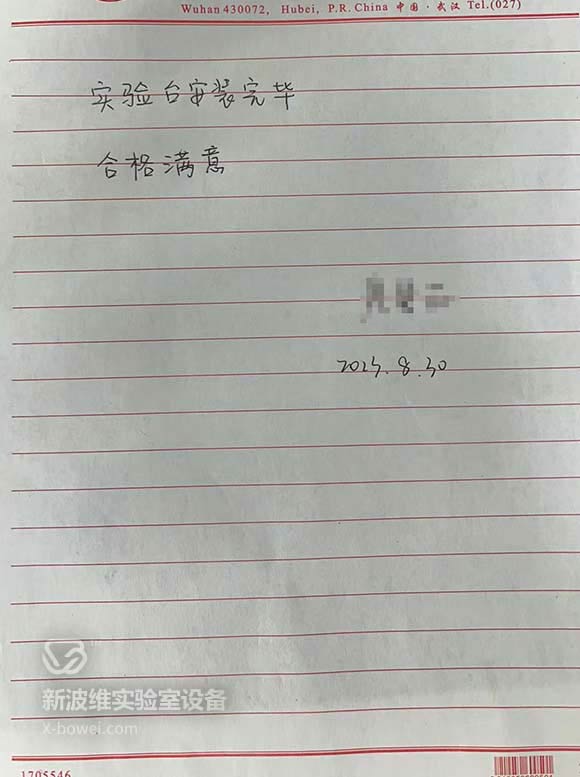 Wuhan 430072, Hubei, P.R. China 中国·武汉 Tel.(027)
实验台安装完毕
合格满意
2025.8.30
新波维实验室设备
x-bowei.com
1705546